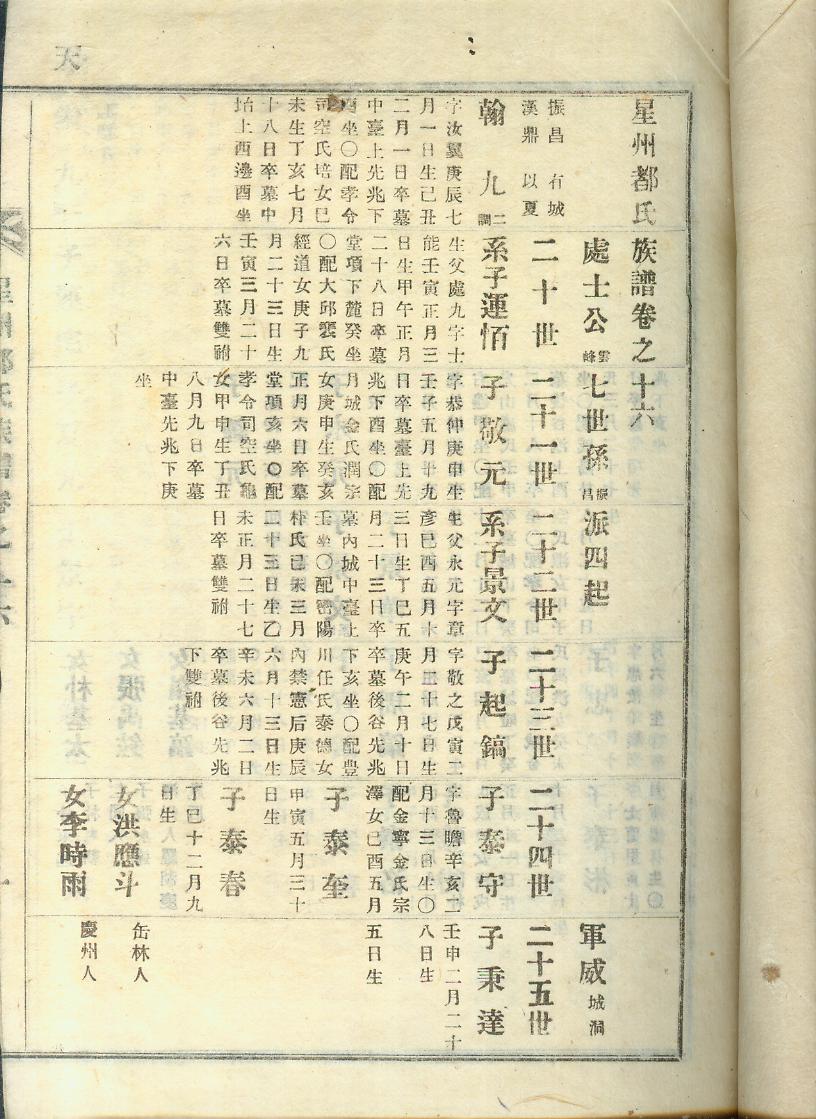 星州都氏族譜卷之十六
處士公雲峰七世孫振昌派四起
軍威城洞
振昌 有城
漢鼎 以夏
二十世
二十一世
二十二世
二十三世
二十四世
二十五世
翰九
字汝翼庚辰七
月一日生己丑
二月一日卒墓
中臺上先兆下
酉坐〇配孝令
司空氏培女巳
未生丁亥七月
十八日卒墓中
坮上酉邊酉坐
系子運佰
生父處九字士
能壬寅正月三
日生甲午正月
二十八日卒墓
堂項下麓癸坐
〇配大邱裵氏
經道女庚子九
月二十三日生
壬寅三月二十
六日卒墓雙祔
子敬元
字恭仲庚申生
壬子五月十九
日卒墓臺上先
兆下酉坐〇配
月城金氏潤宗
女庚申生癸亥
正月六日卒墓
堂項亥坐〇配
孝令司空氏龜
女甲申生丁丑
八月九日卒墓
中臺先兆下庚
坐
系子景文
生父永元字章
彥巳酉五月十
三日生丁巳五
月二十三日卒
墓內城中臺上
壬坐〇配密陽
朴氏己未三月
二十三日生乙
未正月二十七
日卒墓雙祔
子起鎬
字敬之戊寅二
月二十七日生
庚午二月十日
卒墓後谷先兆
下亥坐〇配豊
川任氏泰德女
內禁憲后庚辰
六月十三日生
辛未六月二日
卒墓後谷先兆
下雙祔
子泰守
字魯瞻辛亥二
月十三日生〇
配金寧金氏宗
澤女巳酉五月
五日生
子秉達
壬申二月二十
八日生
子泰奎
甲寅五月三十
日生
子泰春
丁巳十二月九
日生
女洪應斗
缶林人
女李時雨
慶州人